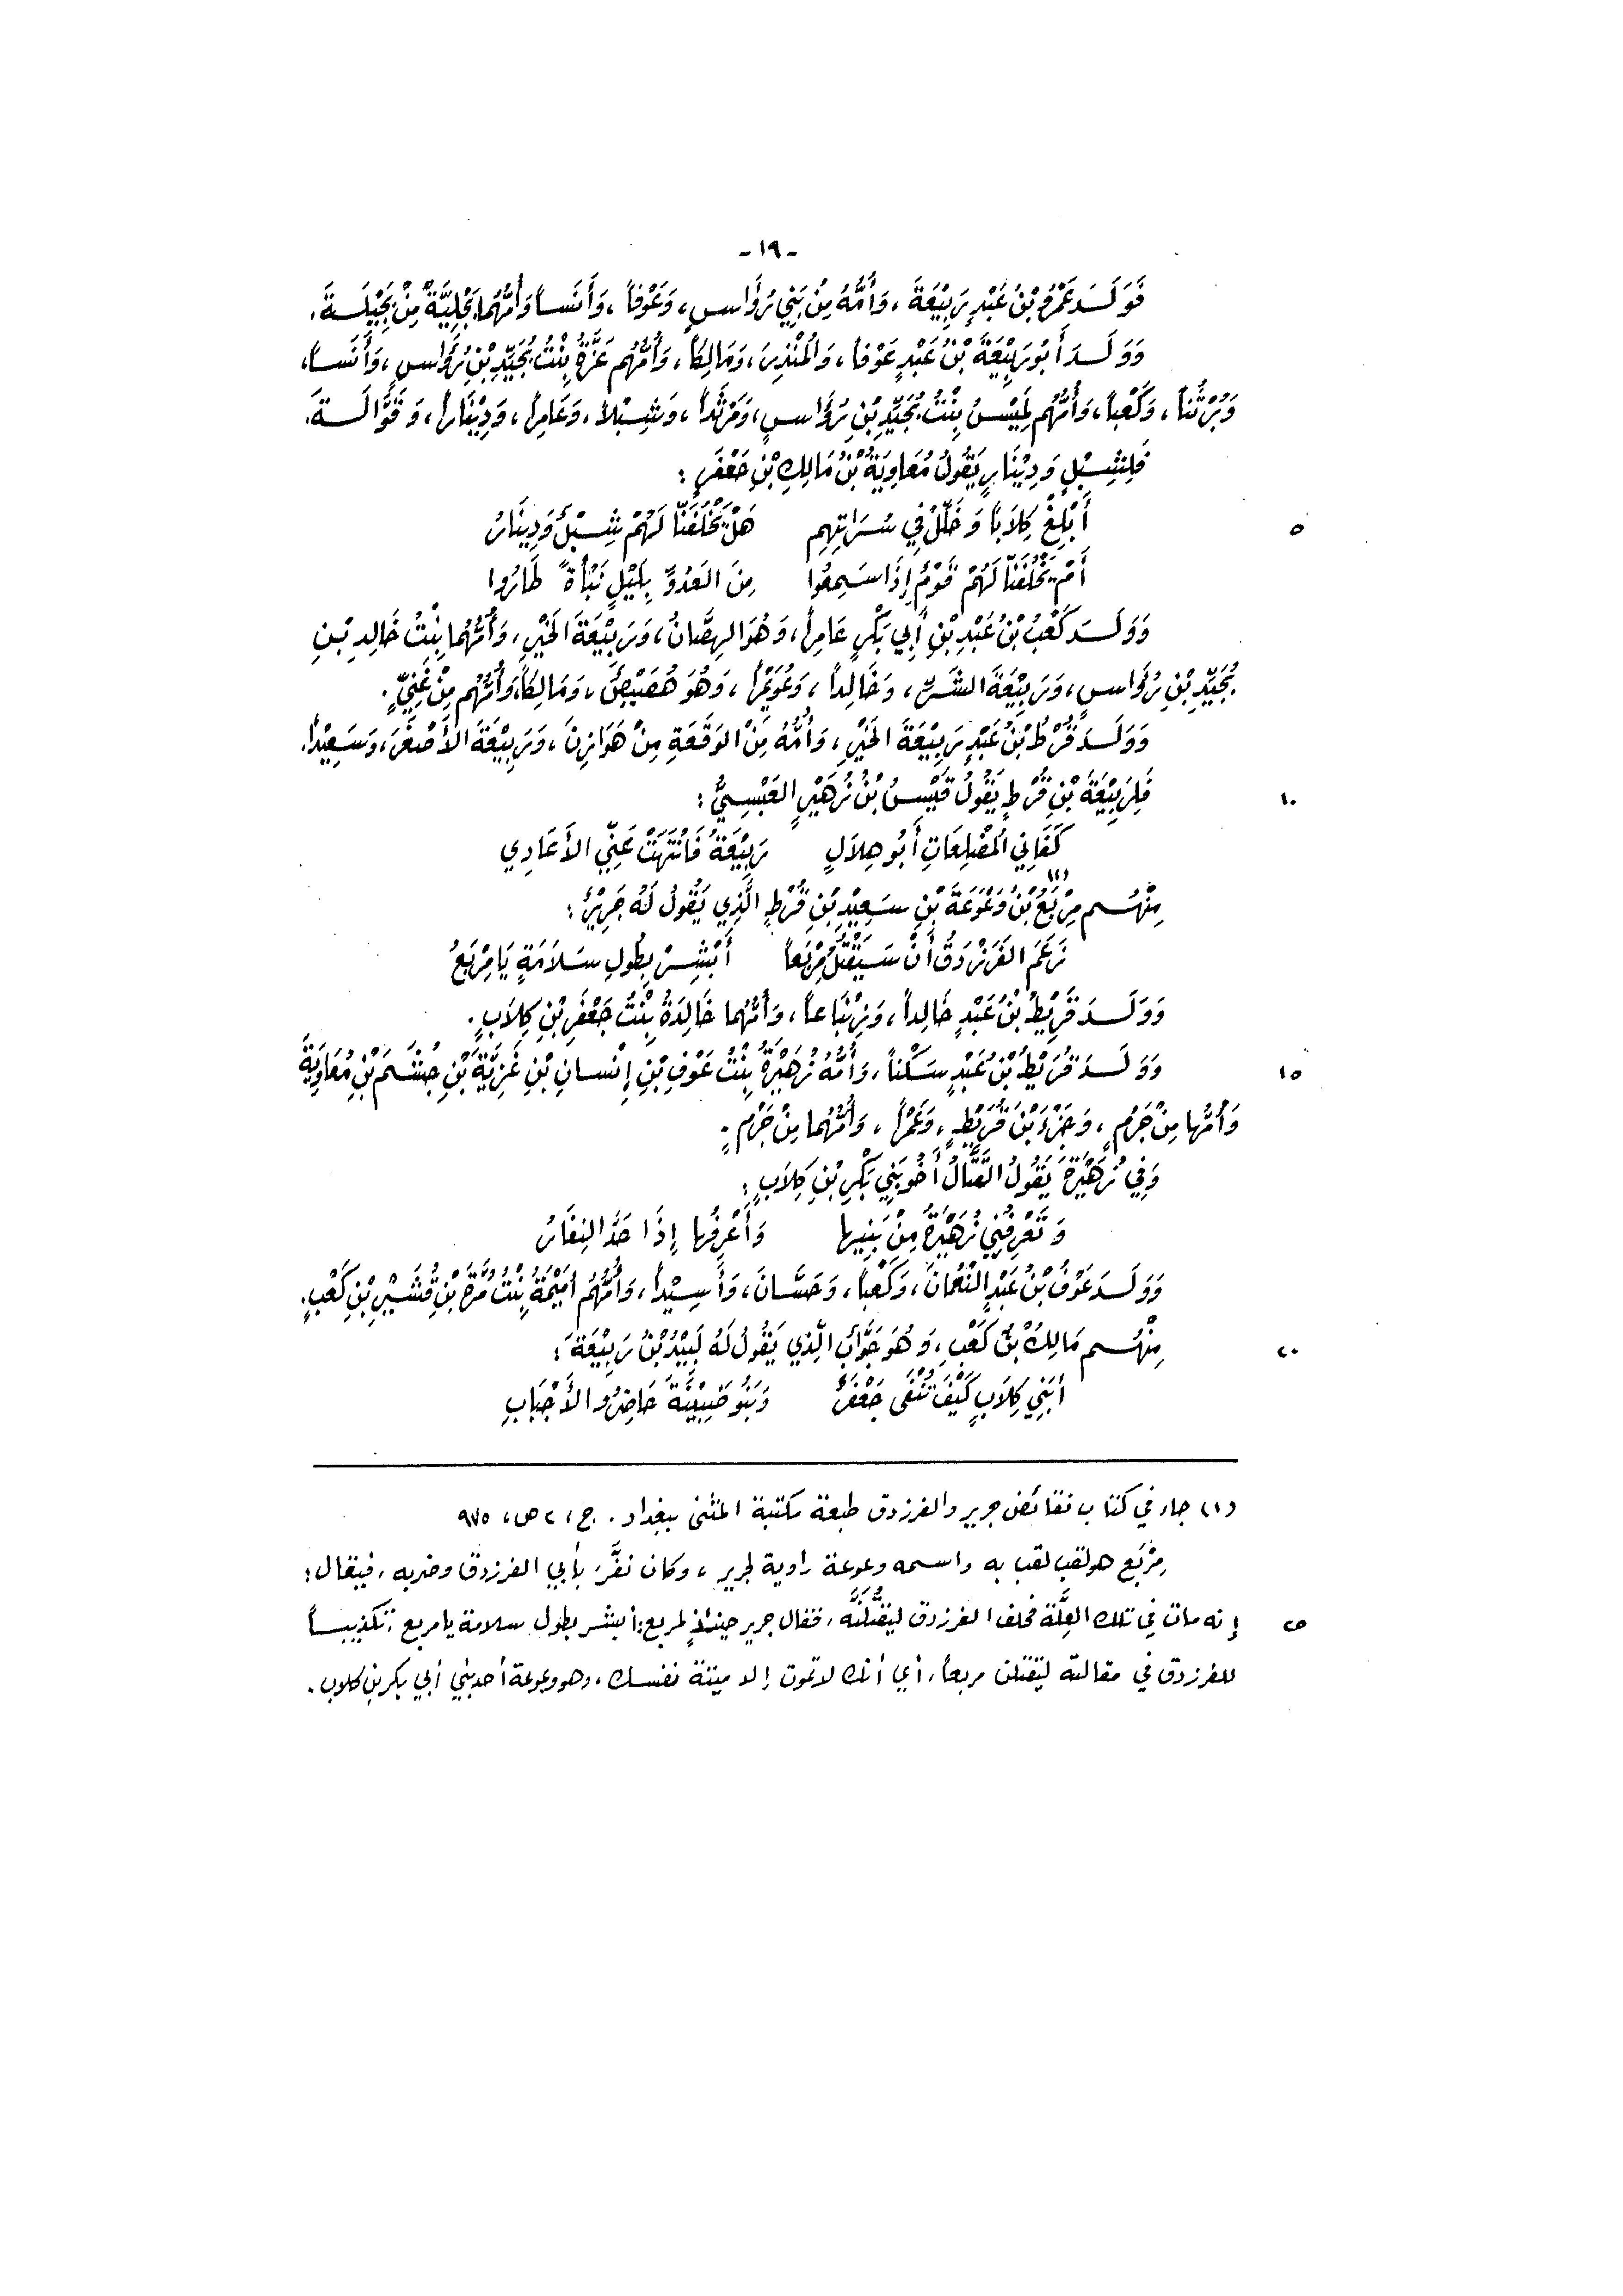 - ١٩ -
فَوَلَـدَ عَمْرُو بْنُ عَبْدٍ رَبِيْعَةَ ، وَأُمُّهُ مِنْ بَنِي رُؤَاسٍ ، وَعَوْفاً ، وَأَنَساً وَأُمُّهُما بَجْلِيَّةٌ مِنْ بَجِيْلَـةَ .
وَوَلَـدَ أَبُو رَبِيْعَةَ بْنُ عَبْدٍ عَوْفاً ، وَالمُنْذِرَ ، وَمَالِكاً ، وَأُمُّهُم عَزَّةُ بِنْتُ بُجَيْدِ بْنِ رُؤَاسٍ ، وَأَنَسـاً ،
وَبُرْثُناً ، وَكَعْباً ، وَأُمُّهُم لَمِيْسُ بِنْتُ بُجَيْدِ بْنِ رُؤَاسٍ ، وَمَرْثَداً ، وَشِـبْلاً ، وَعَامِراً ، وَدِيْنَاراً ، وَقَوَّالَـةَ .
فَلِشِبْلٍ وَدِيْنَارٍ يَقُولُ مُعَاوِيَةُ بْنُ مَالِكِ بْنِ جَعْفَرٍ :
٥ أَبْلِغْ كِلاَبًا وَخَلِّلْ فِي سَرَاتِهِم هَلْ تَخْلُفَنَّا لَهُمْ شِبْلٌ وَدِينَارُ
أَمْ تَخْلُفَنَّا لَهُمْ قَوْمٌ إِذَا سَمِعُوا مِنَ العَدُوِّ بِلَيْلٍ نَبْأَةً طَارُوا
وَوَلَـدَ كَعْبُ بْنُ عَبْدِ بْنِ أَبِي بَكْرٍ عَامِراً ، وَهُوَ الهِصَّانُ ، وَرَبِيْعَةَ الخَيْرِ ، وَأُمُّهُما بِنْتُ خَالِدِ بْـنِ
بُجَيْدِ بْنِ رُؤَاسٍ ، وَرَبِيْعَةَ الشَّرِّ ، وَخَالِداً ، وَعُوَيْمِراً ، وَهُوَ هُصَيْصٌ ، وَمَالِكاً، وَأُمُّهُم مِنْ غَنِيٍّ .
وَوَلَـدَ قُرْطُ بْنُ عَبْدٍ رَبِيْعَةَ الخَيْرِ ، وَأُمُّهُ مِنْ الوَقَعَةِ مِنْ هَوَازِنَ ، وَرَبِيْعَةَ الأَصْغَرَ ، وَسَعِيْداً .
١٠ فَلِرَبِيْعَةَ بْنِ قُرْطٍ يَقُولُ قَيْسُ بْنُ زُهَيْرٍ العَبْسِيُّ :
كَفَانِي المُضْلِعَاتِ أَبُو هِلاَلٍ رَبِيْعَةُ فَانْتَهَتْ عَنِّي الأَعَادِي
مِنْهُـم مِرْبَعُ (١) بْنُ وَعْوَعَةَ بْنِ سَعِيْدِ بْنِ قُرْطٍ الَّذِي يَقُولُ لَهُ جَرِيْرٌ :
زَعَمَ الفَرَزْدَقُ أَنْ سَيَقْتُلُ مِرْبَعاً أَبْشِرْ بِطُولِ سَلاَمَةٍ يَا مِرْبَعُ
وَوَلَـدَ قُرَيْطُ بْنُ عَبْدٍ خَالِداً ، وَزِنْبَاعاً ، وَأُمُّهُما خَالِدَةُ بِنْتُ جَعْفَرِ بْنِ كِلاَبٍ .
١٥ وَوَلَـدَ قُرَيْطُ بْنُ عَبْدٍ سَكَناً ، وَأُمُّهُ زُهَيْرَةُ بِنْتُ عَوْفِ بْنِ إِنْسانِ بْنِ غَزِيَّةَ بْنِ جُشَـمَ بْنِ مُعَاوِيَةَ
وَأُمُّها مِنْ جَرْمٍ ، وَجَزْءَ بْنَ قُرَيْطٍ ، وَعَمْراً ، وَأُمُّهُما مِنْ جَرْمٍ .
وَفِي زُهَيْرَةَ يَقُولُ القَتَّالُ أَخُو بَنِي بَكْرِ بْنِ كِلاَبٍ :
وَتَعْرِفُنِي زُهَيْرَةُ مِنْ بَنِيها وَأَعْرِفُها إِذَا جَدَّ النِفَارُ
وَوَلَـدَ عَوْفُ بْنُ عَبْدٍ النُّعْمَانَ ، وَكَعْباً ، وَحَسَّانَ ، وَأَسِيْداً ، وَأُمُّهُم أُمَيْمَةُ بِنْتُ مُرَّةَ بْنِ قُشَيْرِ بْنِ كَعْبٍ .
٢٠ مِنْهُـم مَالِكُ بْنُ كَعْبٍ ، وَهُوَ جَوَّابٌ الَّذِي يَقُولُ لَهُ لَبِيْدُ بْنُ رَبِيْعَةَ :
أَبَنِي كِلاَبٍ كَيْفَ تُنْفَى جَعْفَرٌ وَبَنُو ضَبِيْنَةَ حَاضِرُو الأَجْبَابِ
(١) جاء في كتاب نقائض جرير والفرزدق طبعة مكتبة المثنى ببغداد . ج ، ٢ ص ، ٩٧٥
مِرْبَع هو لقب لقب به واسمه وعوعة راوية لجرير ، وكان نفَّرَ بأبي الفرزدق وضربه ، فيقال :
٢٥ إنه مات في تلك العِلَّة فحلف الفرزدق ليَقْتُلَنَّه ، فقال جرير حينئذٍ لمربع : أبشر بطول سلامة يا مربع ، تكذيبـاً
للفرزدق في مقالته ليقتلن مربعاً ، أي أنك لا تموت إلا ميتة نفسك ، وهو وعوعة أحد بني أبي بكر بن كلاب .